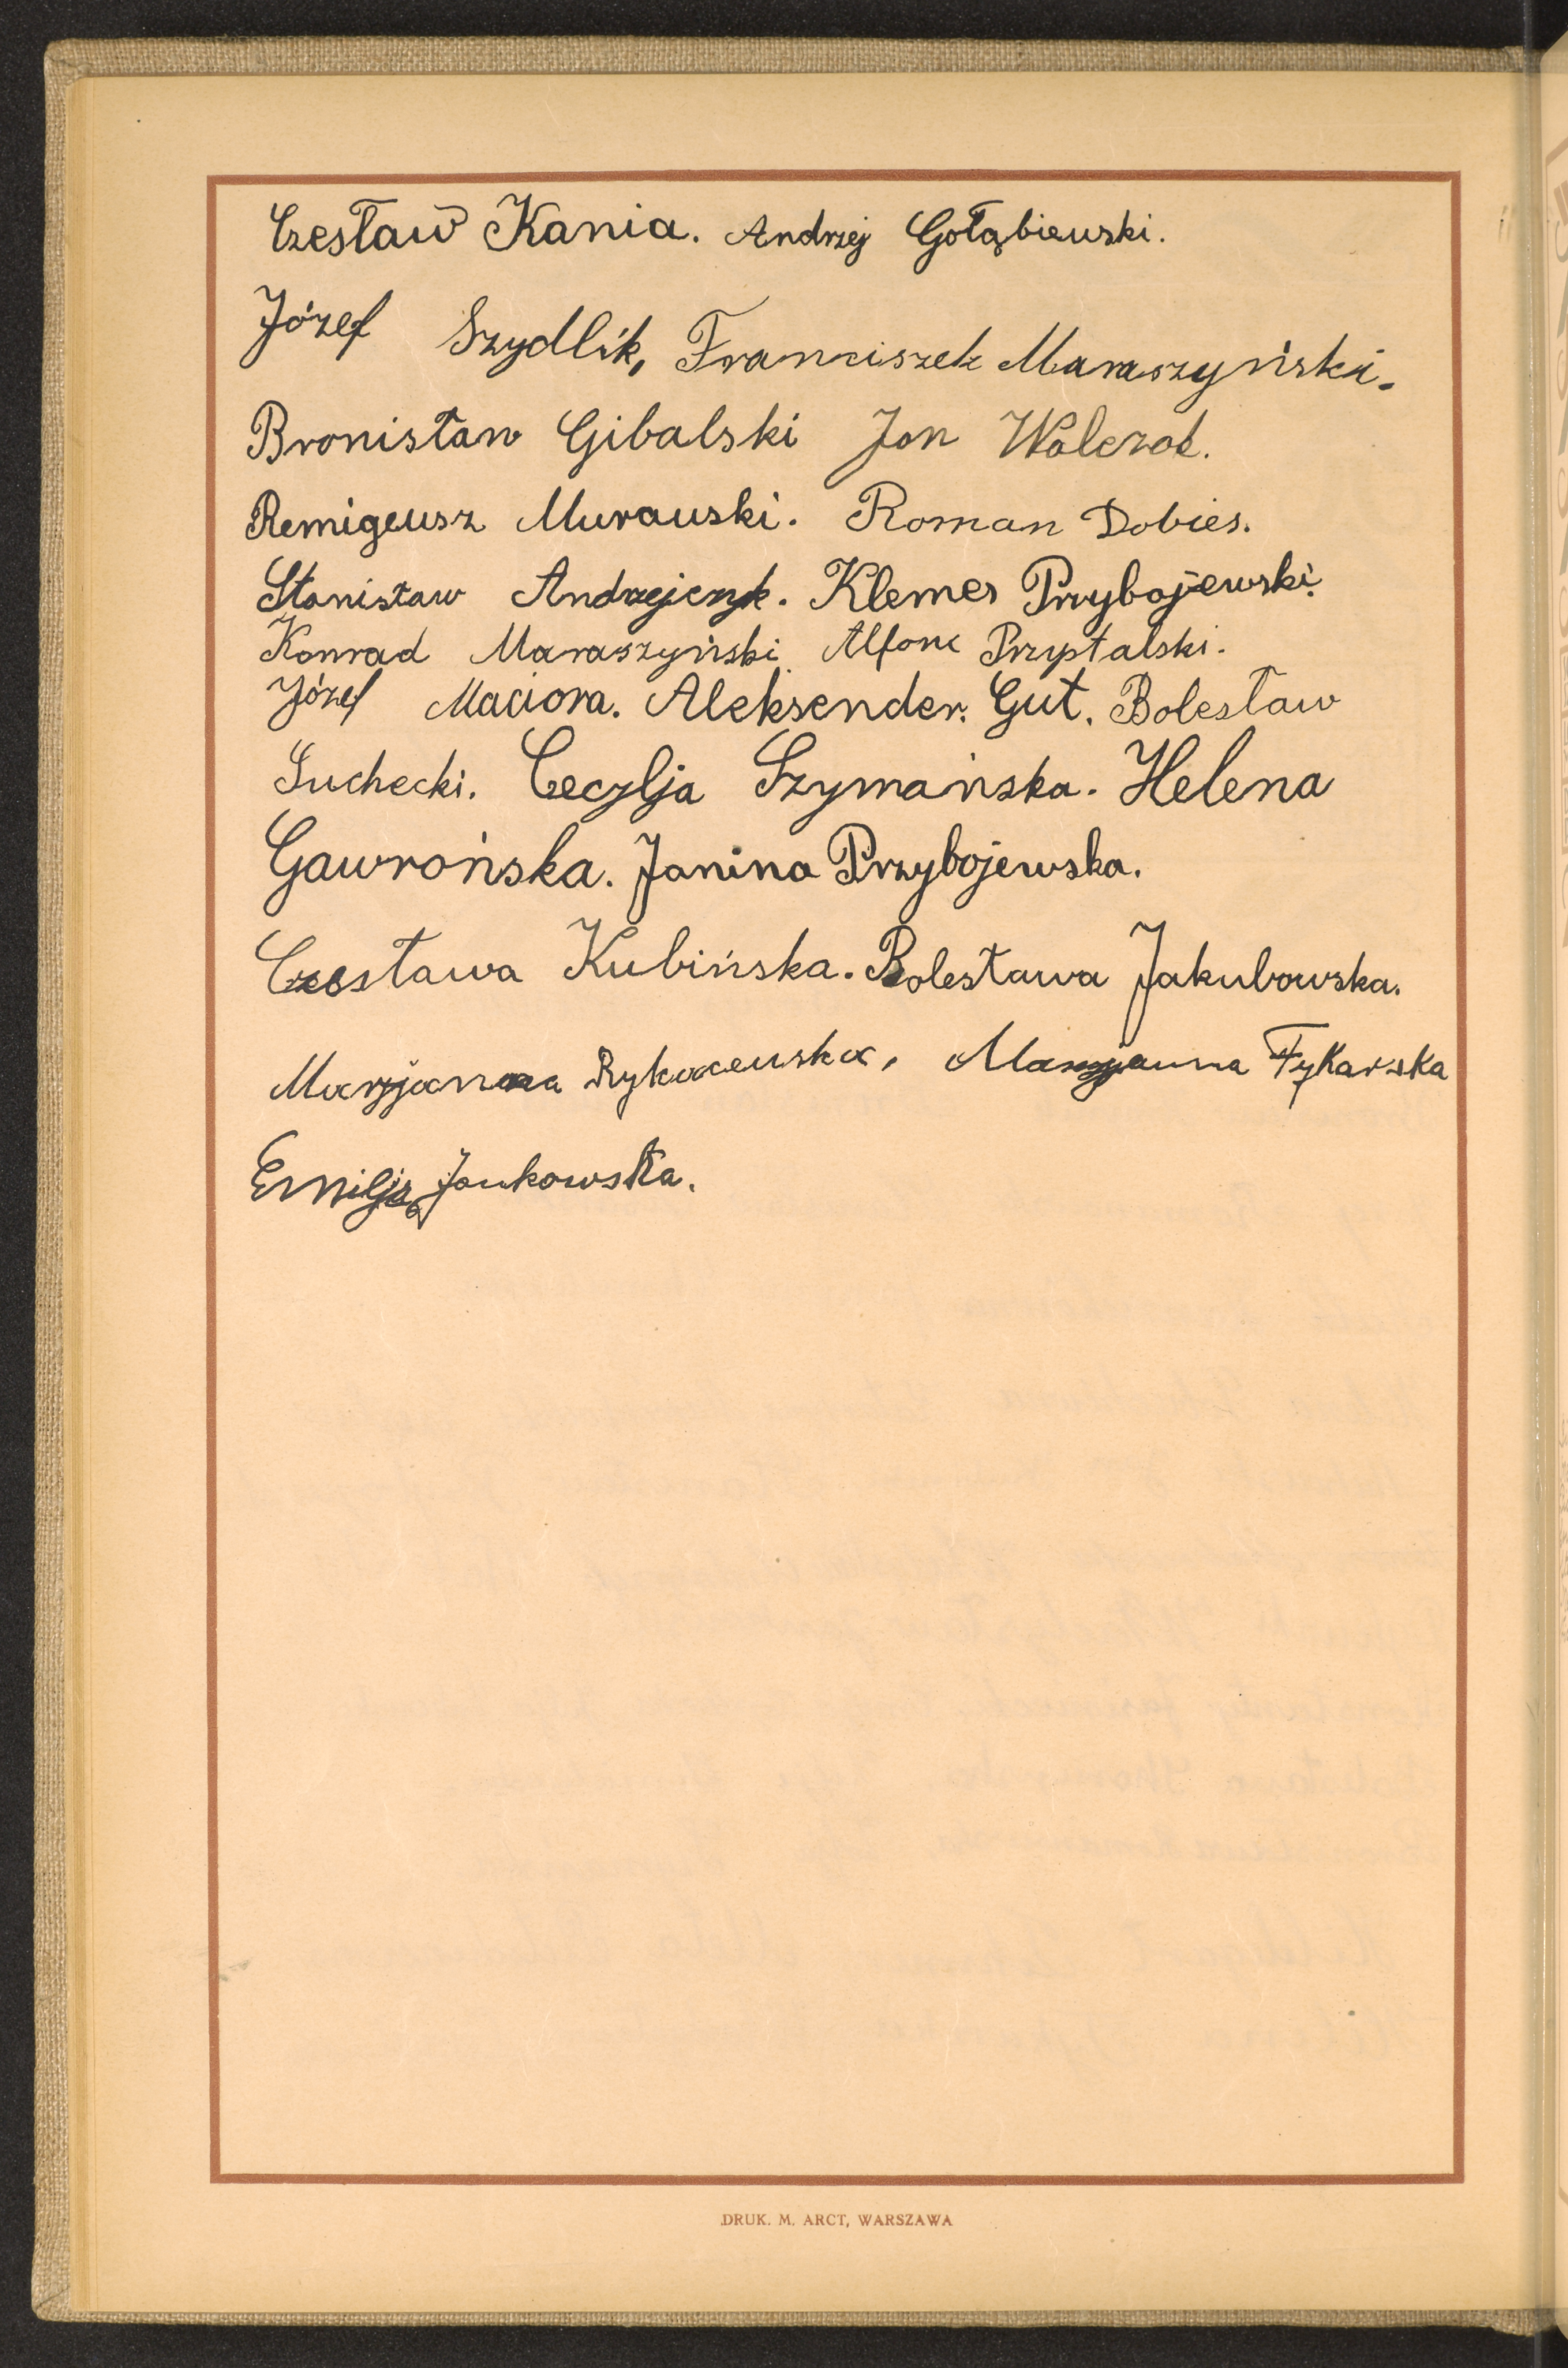 Czesław Kania. Andrzej Gołąbiewski.
Józef Szydlik, Franciszek Maraszyński.
Bronisław Gibalski Jan Walczak.
Remigeusz Murauski. Roman Dobies.
Stanisław Andrzejczyk. Klemes Przybojewski.
Konrad Maraszyński. Alfons Przyptalski.
Józef Maciora. Aleksender. Gut. Bolesław
Suchecki. Cecylja Szymańska. Helena
Gawrońska. Janina Przybojewska.
Czesława Kubińska. Bolesława Jakubowska.
Marjanna Rykaczewska, Marjanna Fykarska
Emilja Jankowska.
DRUK. M. ARCT, WARSZAWA